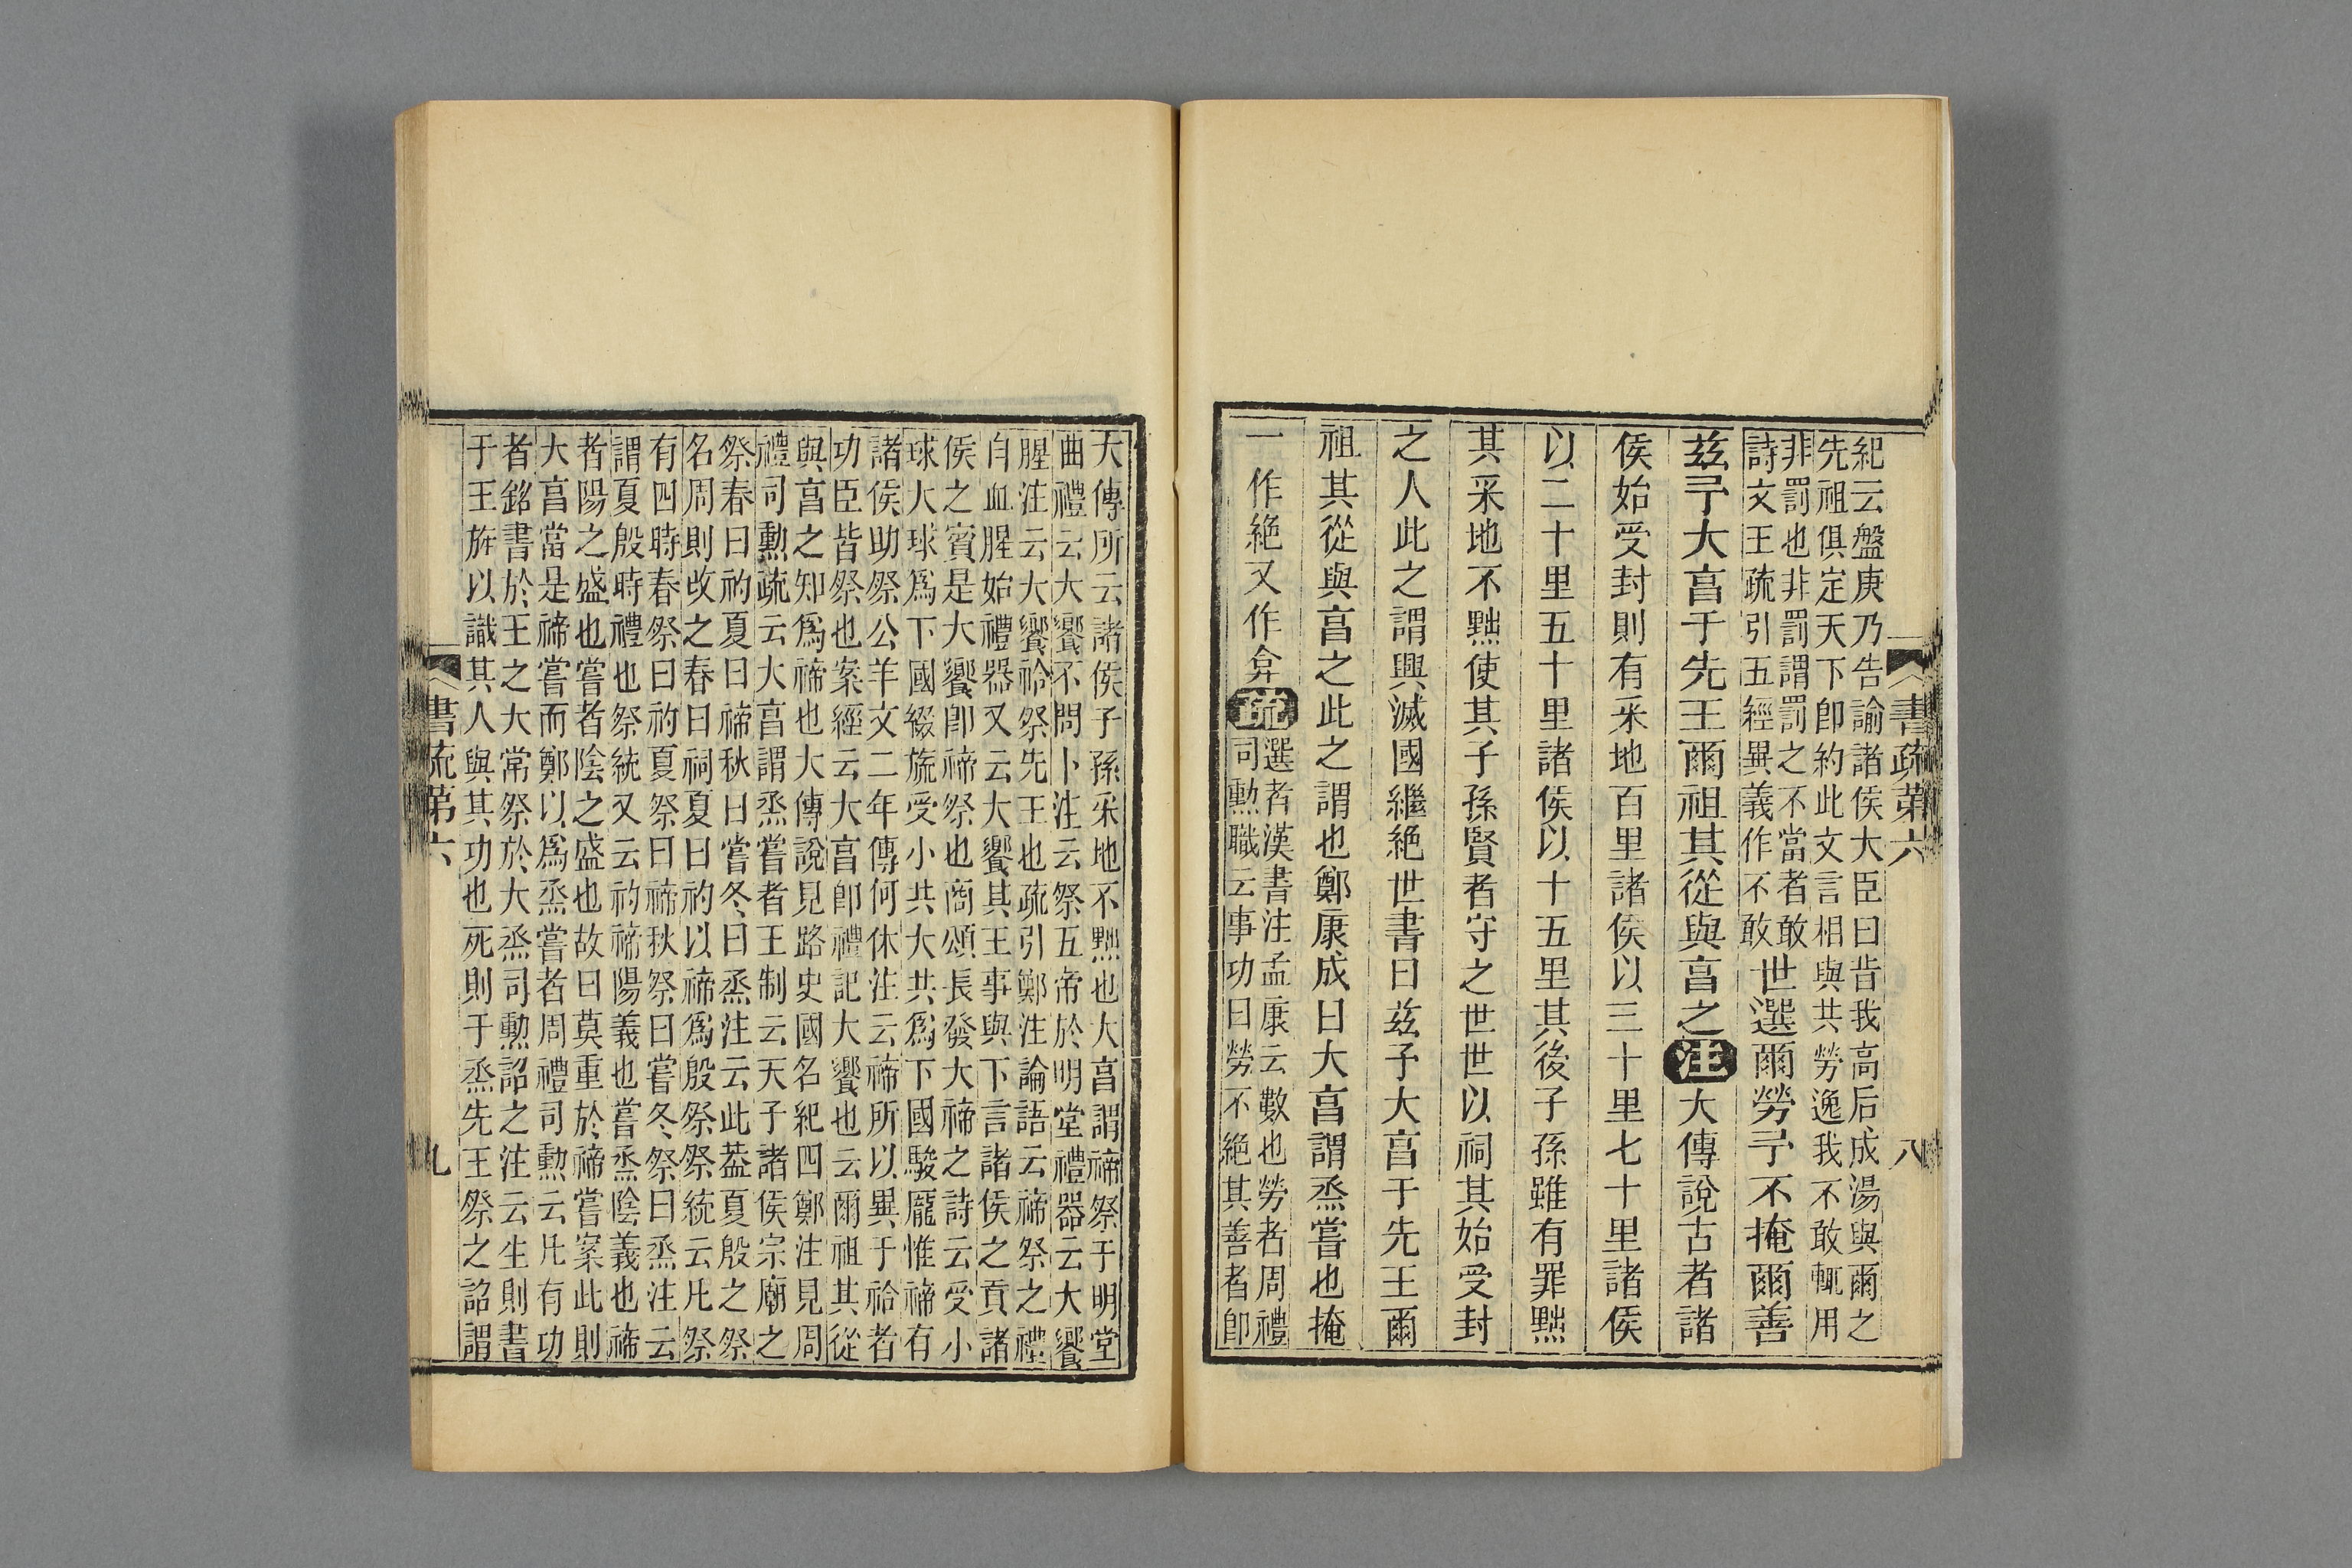 書疏第六
八
紀云盤庚乃告諭諸侯大臣曰昔我高后成湯與爾之
先祖俱定天下卽約此文言相與共勞逸我不敢輒用
非罰也非罰謂罰之不當者敢
詩文王疏引五經異義作不敢
世選爾勞予不掩爾善
兹予大亯于先王爾祖其從與亯之注大傳說古者諸
侯始受封則有采地百里諸侯以三十里七十里諸侯
以二十里五十里諸侯以十五里其後子孫雖有罪黜
其采地不黜使其子孫賢者守之世世以祠其始受封
之人此之謂興滅國繼絶世書曰兹予大亯于先王爾
祖其從與亯之此之謂也鄭康成曰大亯謂烝嘗也掩
一作絶又作弇疏
選者漢書注孟康云數也勞者周禮
司勲職云事功曰勞不絶其善者卽
大傳所云諸侯子孫采地不黜也大亯謂禘祭于明堂
曲禮云大饗不問卜注云祭五帝於明堂禮器云大饗
腥注云大饗祫祭先王也疏引鄭注論語云禘祭之禮
自血腥始禮器又云大饗其王事與下言諸侯之貢諸
侯之賓是大饗卽禘祭也商頌長發大禘之詩云受小
球大球爲下國綴旒受小共大共爲下國駿厖惟禘有
諸侯助祭公羊文二年傳何休注云禘所以異于祫者
功臣皆祭也案經云大亯卽禮記大饗也云爾祖其從
與亯之知爲禘也大傳說見路史國名紀四鄭注見周
禮司勲疏云大亯謂烝嘗者王制云天子諸侯宗廟之
祭春曰礿夏曰禘秋曰嘗冬曰烝注云此葢夏殷之祭
名周則改之春曰祠夏曰礿以禘爲殷祭祭統云凡祭
有四時春祭曰礿夏祭曰禘秋祭曰嘗冬祭曰烝注云
謂夏殷時禮也祭統又云礿禘陽義也嘗烝陰義也禘
者陽之盛也嘗者陰之盛也故曰莫重於禘嘗案此則
大亯當是禘嘗而鄭以爲烝嘗者周禮司勲云凡有功
者銘書於王之大常祭於大烝司勲詔之注云生則書
于王旌以識其人與其功也死則于烝先王祭之詔謂
書疏第六
九